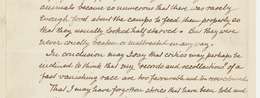 animals became so numerous that there was rarely
enough food about the camps to feed them properly so
that they usually looked half starved - But they are
never cruelly beaten or maltreated in any way.
In conclusion may I say that critics may perhaps be
inclined to think that my records and recollections of a
fast vanishing race are too favourable and too overcoloured
That I may have forgotten stories that have been told and